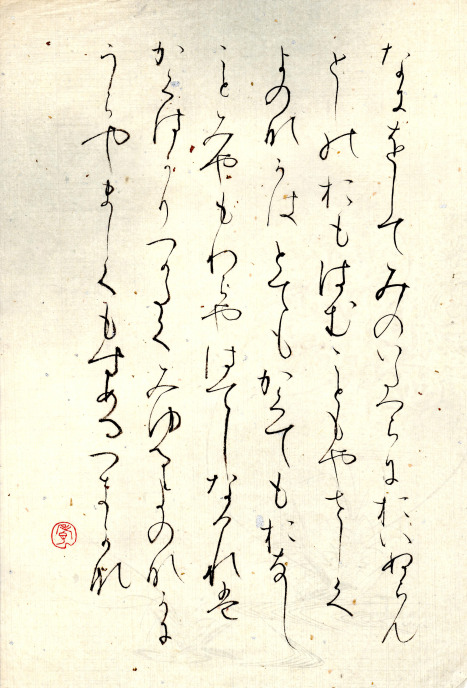 なにをしてみのいたつらにおいぬらん
としのおもはむこともやさしく
よのなかはとてもかくてもおなし
ことみやもわらやはてしなければ
かくはかりへかたくみゆるよのなかに
うらやましくもすめるつきかな